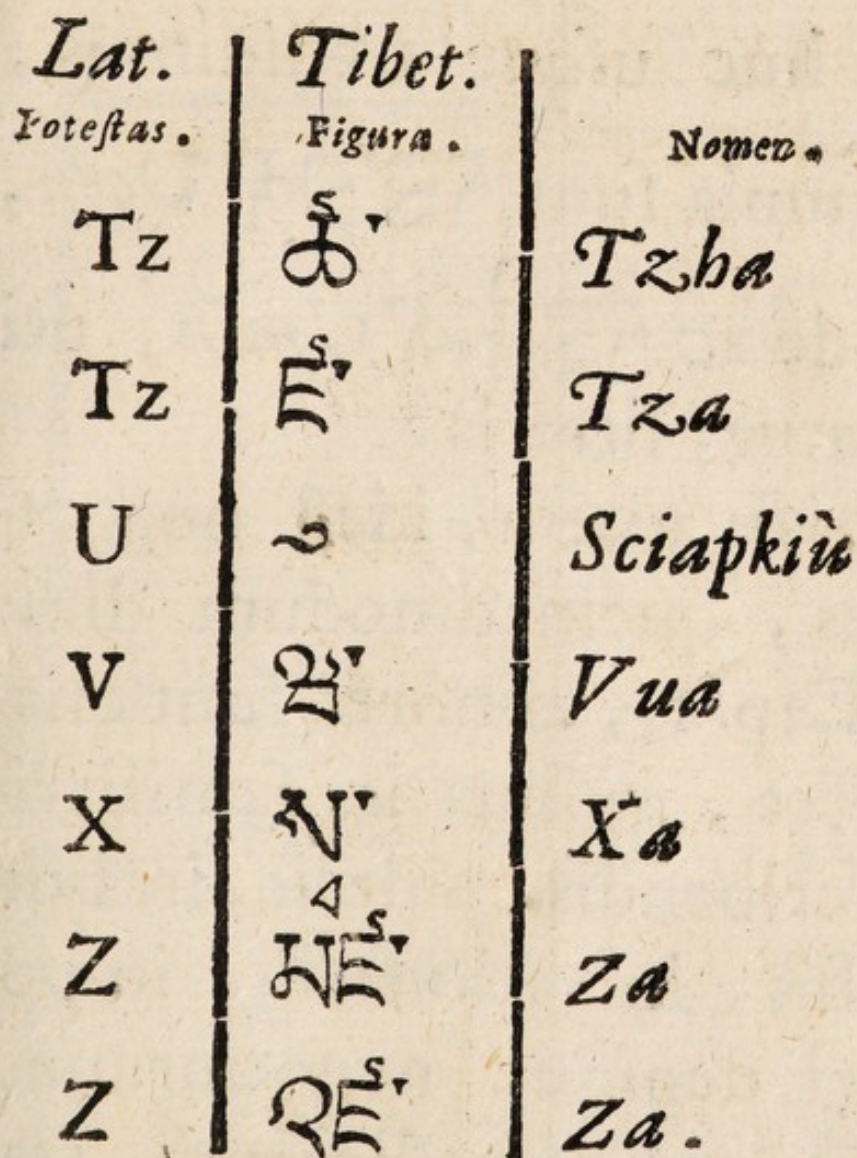 Lat. Tibet.
Potestas. Figura. Nomen.
Tz ཚ་ Tzha
Tz ཛ་ Tza
U ུ Sciapkiù
V ཝ་ Vua
X Xa
Z མཛ་ Za
Z འཛ་ Za.